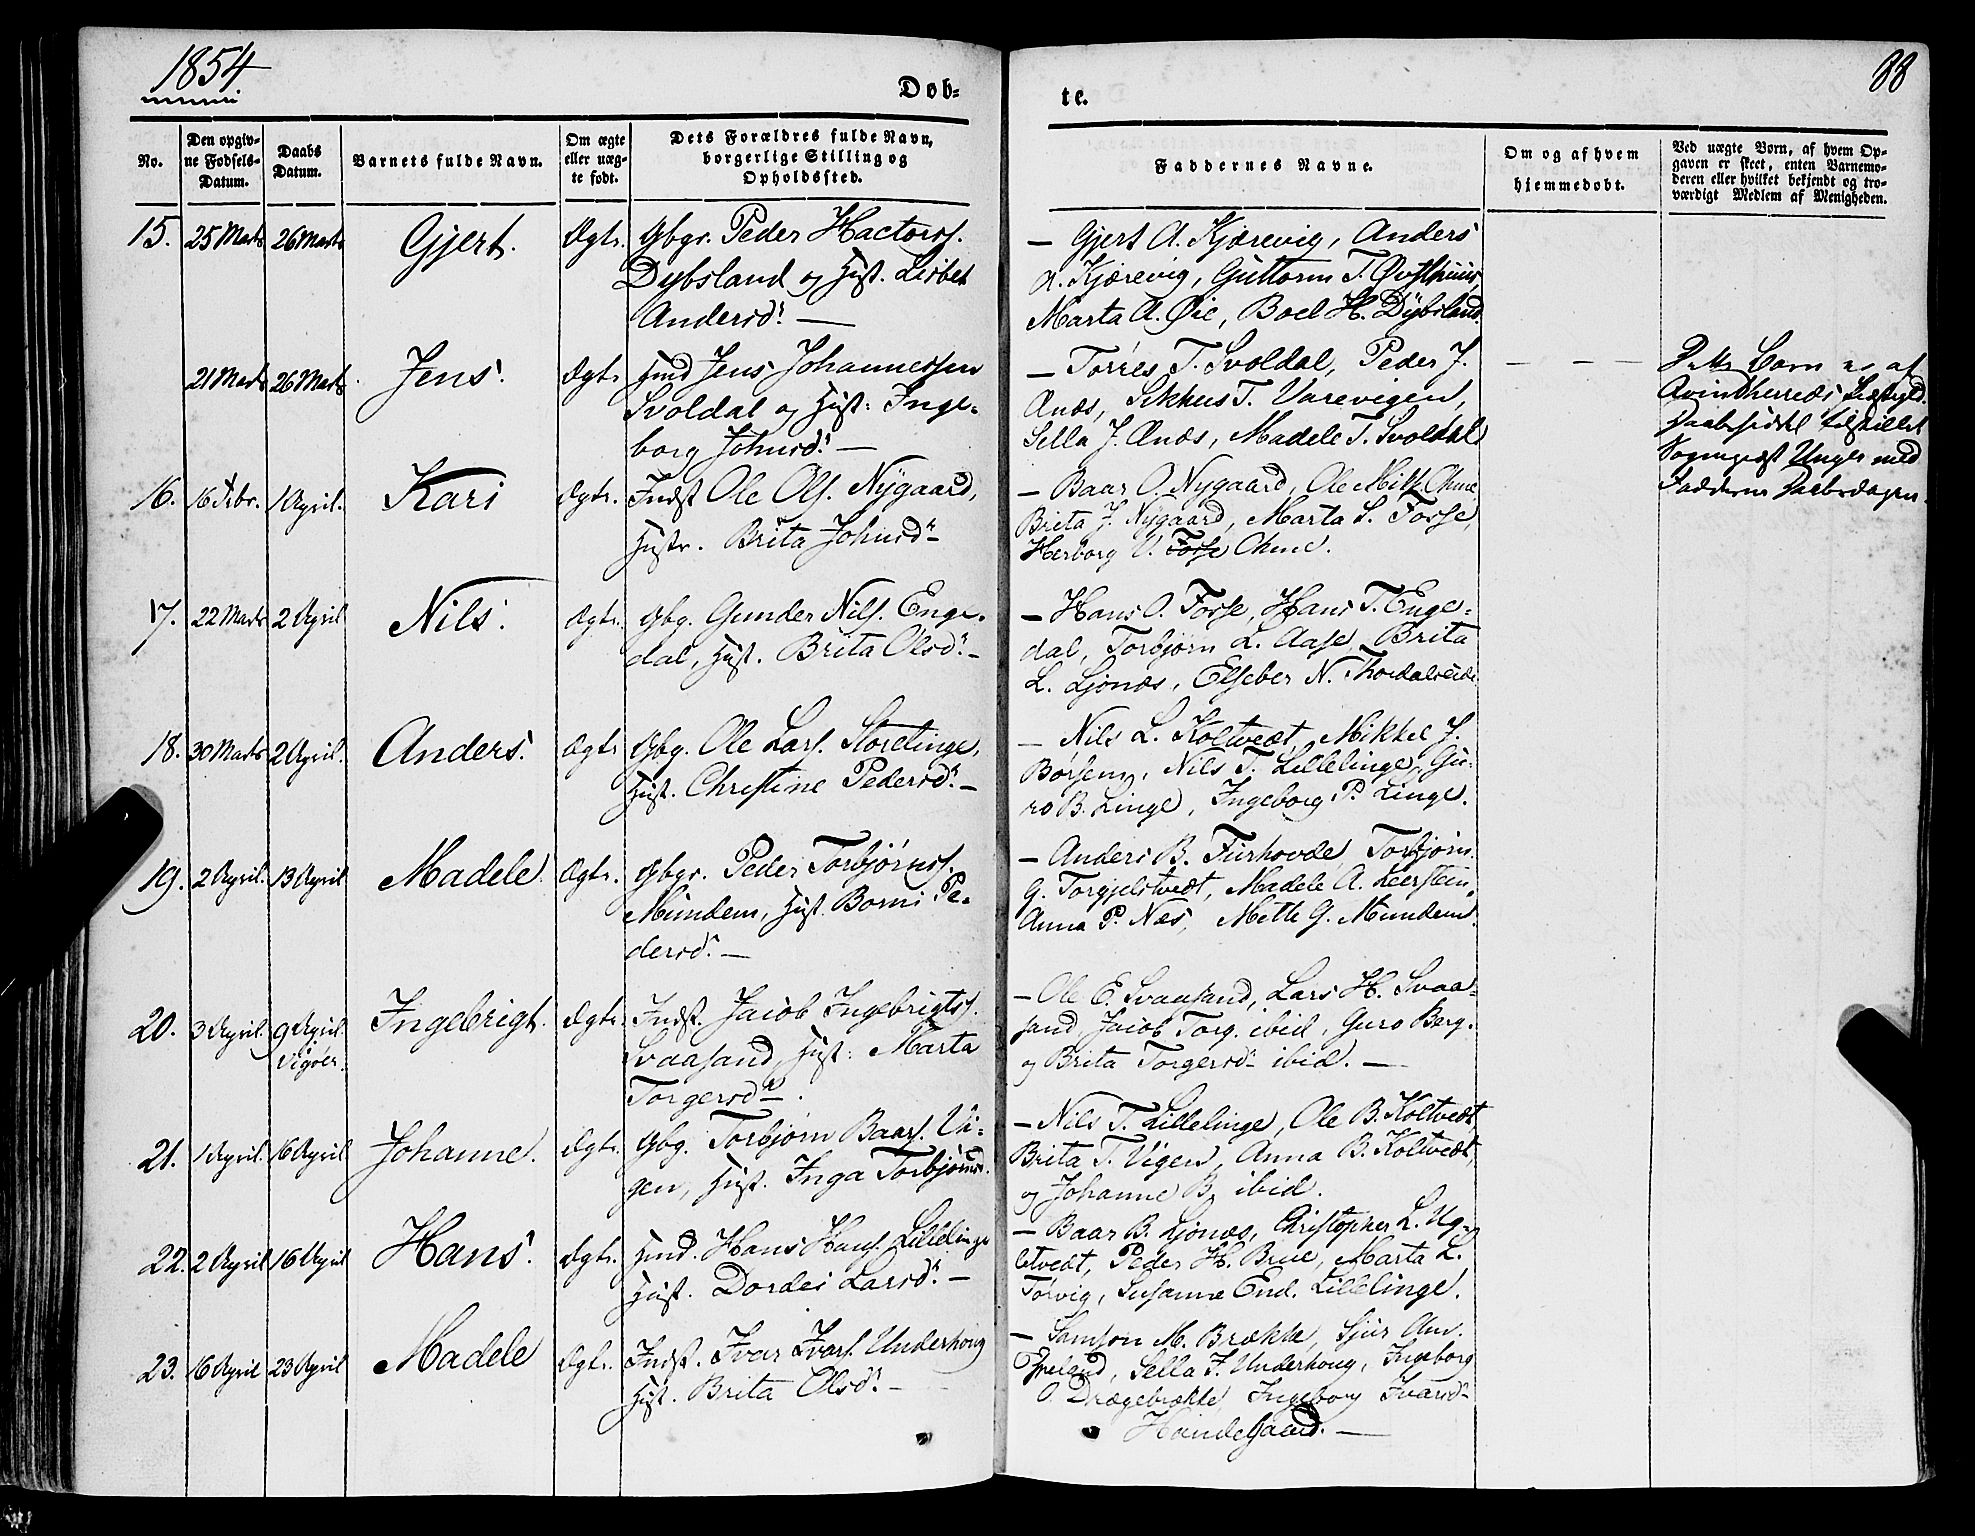 1854
88
Døb-
te.
No.
Den opgiv-
ne Fødsels-
Datum.
Daabs
Datum.
Barnets fulde Navn.
Om ægte
eller uæg-
te født.
Dets Forældres fulde Navn,
borgerlige Stilling og
Opholdssted.
Faddernes Navne.
Om og af hvem
hjemmedøbt.
Ved uægte Børn, af hvem Op-
gaven er skeet, enten Barnemo-
deren eller hvilket bekjendt og tro-
værdigt Medlem af Menigheden.
15. 25 Marts 26 Marts Gjert. Ægte. Gbgr. Peder Hactorss.
Dybsland og Hust. Lisbet
Andersd. —
— Gjert A. Kjærevig, Anders
A. Kjærevig, Guttorm T. Østhuus,
Marta A. Øie, Boel H. Dybsland.
21 Marts 26 Marts Jens. Ægte Jens Johannessen
Svoldal og Hust. Inge-
borg Johnsd. —
— Torres T. Svoldal, Peder J.
Ænæs, Sikkus T. Varevigen,
Sella J. Ænæs, Madele T. Svoldal
— — —
Dette Barn er af
Qvindherreds
Daabsseddel tilstillet
Sogneprest Unger med
Fadderne Daabsdagen.
16. 16 Febr. 1 April. Kari Ægte. Indst Ole Ols. Nygaard,
Hustr. Brita Johnsd
— Baar O. Nygaard, Ole Mikk. Ohme
Brita J. Nygaard, Marta S. Fosse
Herborg V. Fosse Ohme.
17. 22 Marts 2 April Nils. Ægte. Gbg. Gunder Nils. Enge-
dal, Hust. Brita Olsd. —
— Hans O. Fosse, Hans T. Enge-
dal, Torbjørn L. Aase, Brita
L. Ljonæs, Elseber N.
18. 30 Marts 2 April. Anders. Ægte Gbg. Ole Lars. Storelinge,
Hust. Christine Pedersd. —
— Nils L. Koltvedt, Mikkel J.
Børsem, Nils T. Lillelinge, Gu-
ro B. Linge, Ingeborg P. Linge.
19. 2 April. 13 April Madele. Ægte. Gbgr. Peder Torbjørns.
Mundem, Hust. Borni Pe-
dersd. —
— Anders B. Furhovde Torbjørn
G. Torgjelstvedt, Madele A. Leerstein,
Anna P. Næs, Mette G. Mundem.
20. 3 April. 9 April.
Vigøer. Ingebrigt. Ægte. Indst. Jacob Ingebrigts.
Svaasand, Hust: Marta
Torgersd.
— Ole E. Svaasand, Lars H. Svaa-
sand, Jacob Torg. ibid, Guro Berg.
og Brita Torgersd ibid. —
21. 1 April. 16 April Johanne. Ægte. Gbg. Torbjørn Baars. Vi-
gen, Hust. Inga Torbjørnsd.
— Nils T. Lillelinge, Ole B. Koltvedt,
Brita T. Vigen, Anna B. Koltvedt,
og Johanne B. ibid.
22. 2 April 16 April Hans. Ægte. Hans Hans. Lillelinge
Hust. Dordei Larsd. —
— Baar B. Ljonæs, Christopher L. Ug-
letvedt, Peder H. Brue, Marta L.
Tørvig, Susanna End. Lillelinge.
23. 16 April 23 April Madele Ægte. Indst. Ivar Ivars. Underhoug
Hust. Brita Olsd. —
— Samson M. Brække, Sjur Am.
Sella J. Underhoug, Ingeborg
O. Drægebrække, Ingeborg Ivarsd
Handegaard. —